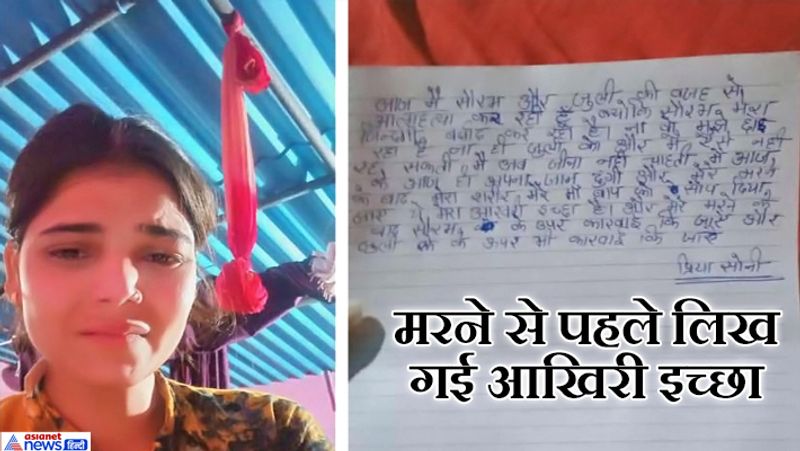 आज मैं सौरभ और जुली की वजह से
आत्माहत्या कर रही हूँ क्योकि सौरभ मेरा
जिन्दगी बर्बाद कर रहा है। ना वो मुझे छोड़
रहा है ना ही जुली को और मैं ऐसे नही
रह सकती मैं अब जीना नही चाहती मैं आज
के आज ही अपना जान दूंगी और मेरे मरने
के बाद मेरा शरीर मेरे माँ बाप को सौप दिया
जाए ये मेरा आखरी इच्छा है। और मेरे मरने के
बाद सौरभ के उपर कारवाई कि जाए और
जुली के उपर भी कारवाई कि जाए
प्रिया सोनी
मरने से पहले लिख
गई आखिरी इच्छा
asianet
news हिन्दी